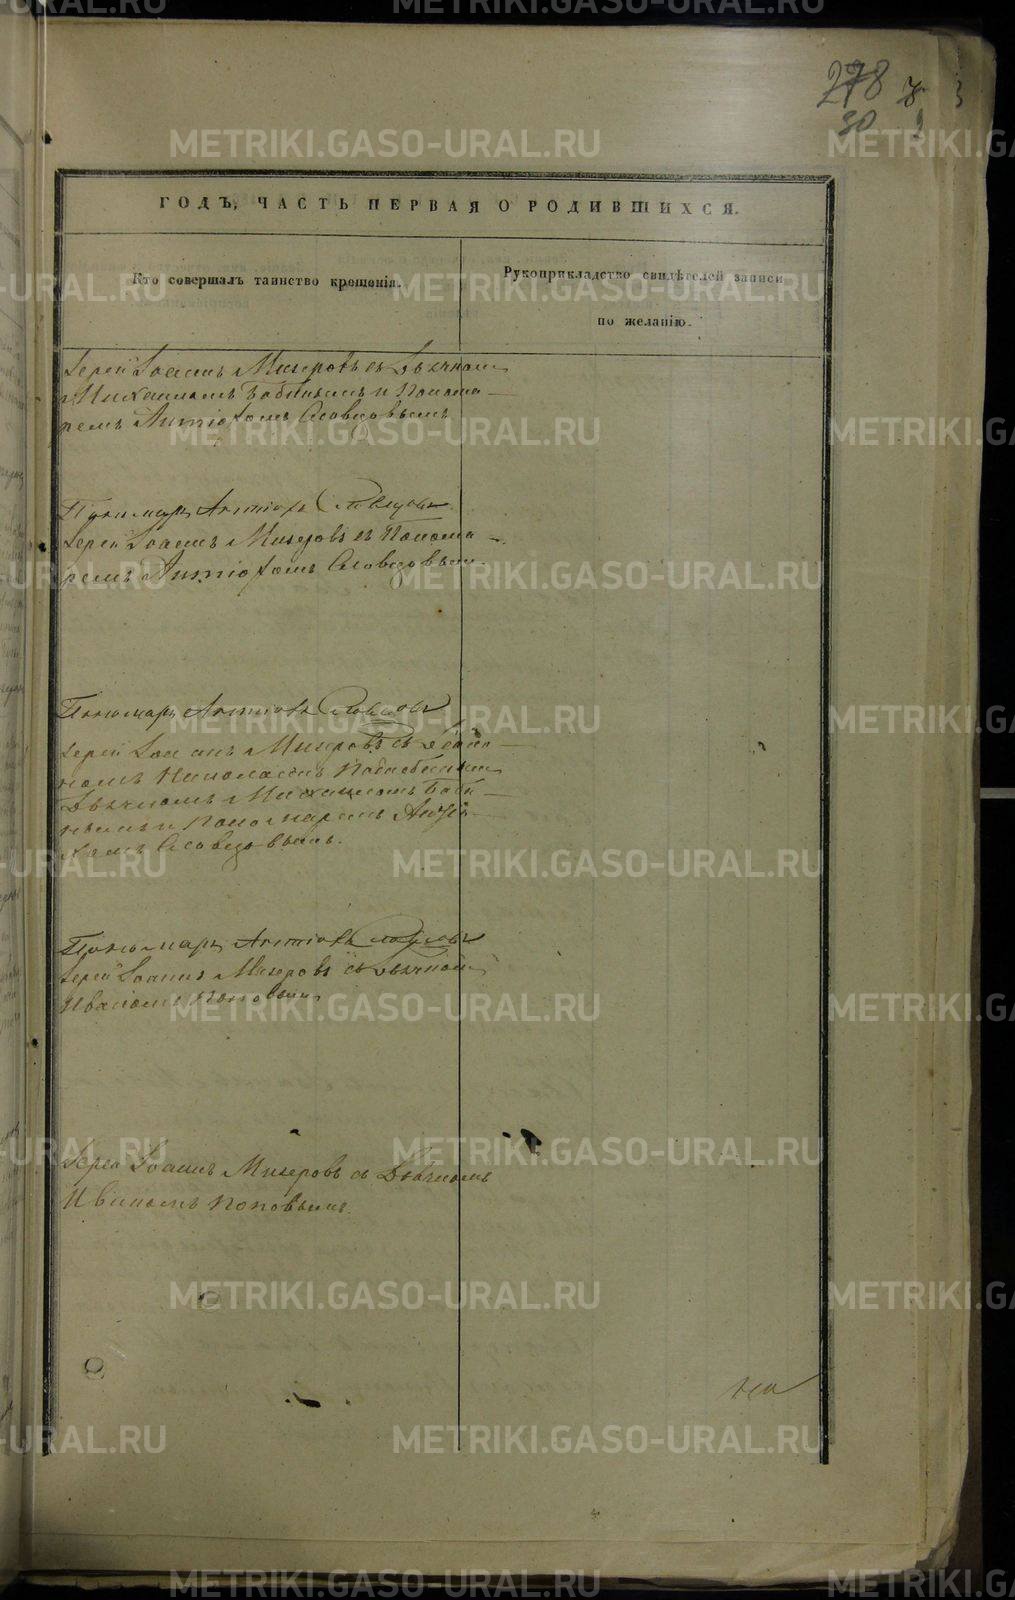 278
30
ГОДЪ, ЧАСТЬ ПЕРВАЯ О РОДИВШИХСЯ.
Кто совершалъ таинство крещенія.
Рукоприкладство свидѣтелей записи
по желанію.
Іерей Іоаннъ Мизеровъ съ Дьячкомъ
Михаиломъ Бабинымъ и Понома-
ремъ Антіохомъ Словцовымъ
Пономарь Антіохъ Словцовъ
Іерей Іоаннъ Мизеровъ съ Понома-
ремъ Антіохомъ Словцовымъ.
Пономарь Антіохъ Словцовъ
Іерей Іоаннъ Мизеровъ съ Діако-
номъ Николаемъ
Дьячкомъ Михаиломъ Баби-
нымъ и Пономаремъ Антіо-
хомъ Словцовымъ.
Пономарь Антіохъ Словцовъ
Іерей Іоаннъ Мизеровъ съ Дьячкомъ
Иваномъ Поповымъ
Іерей Іоаннъ Мизеровъ съ Дьячкомъ
Иваномъ Поповымъ.
METRIKI.GASO-URAL.RU